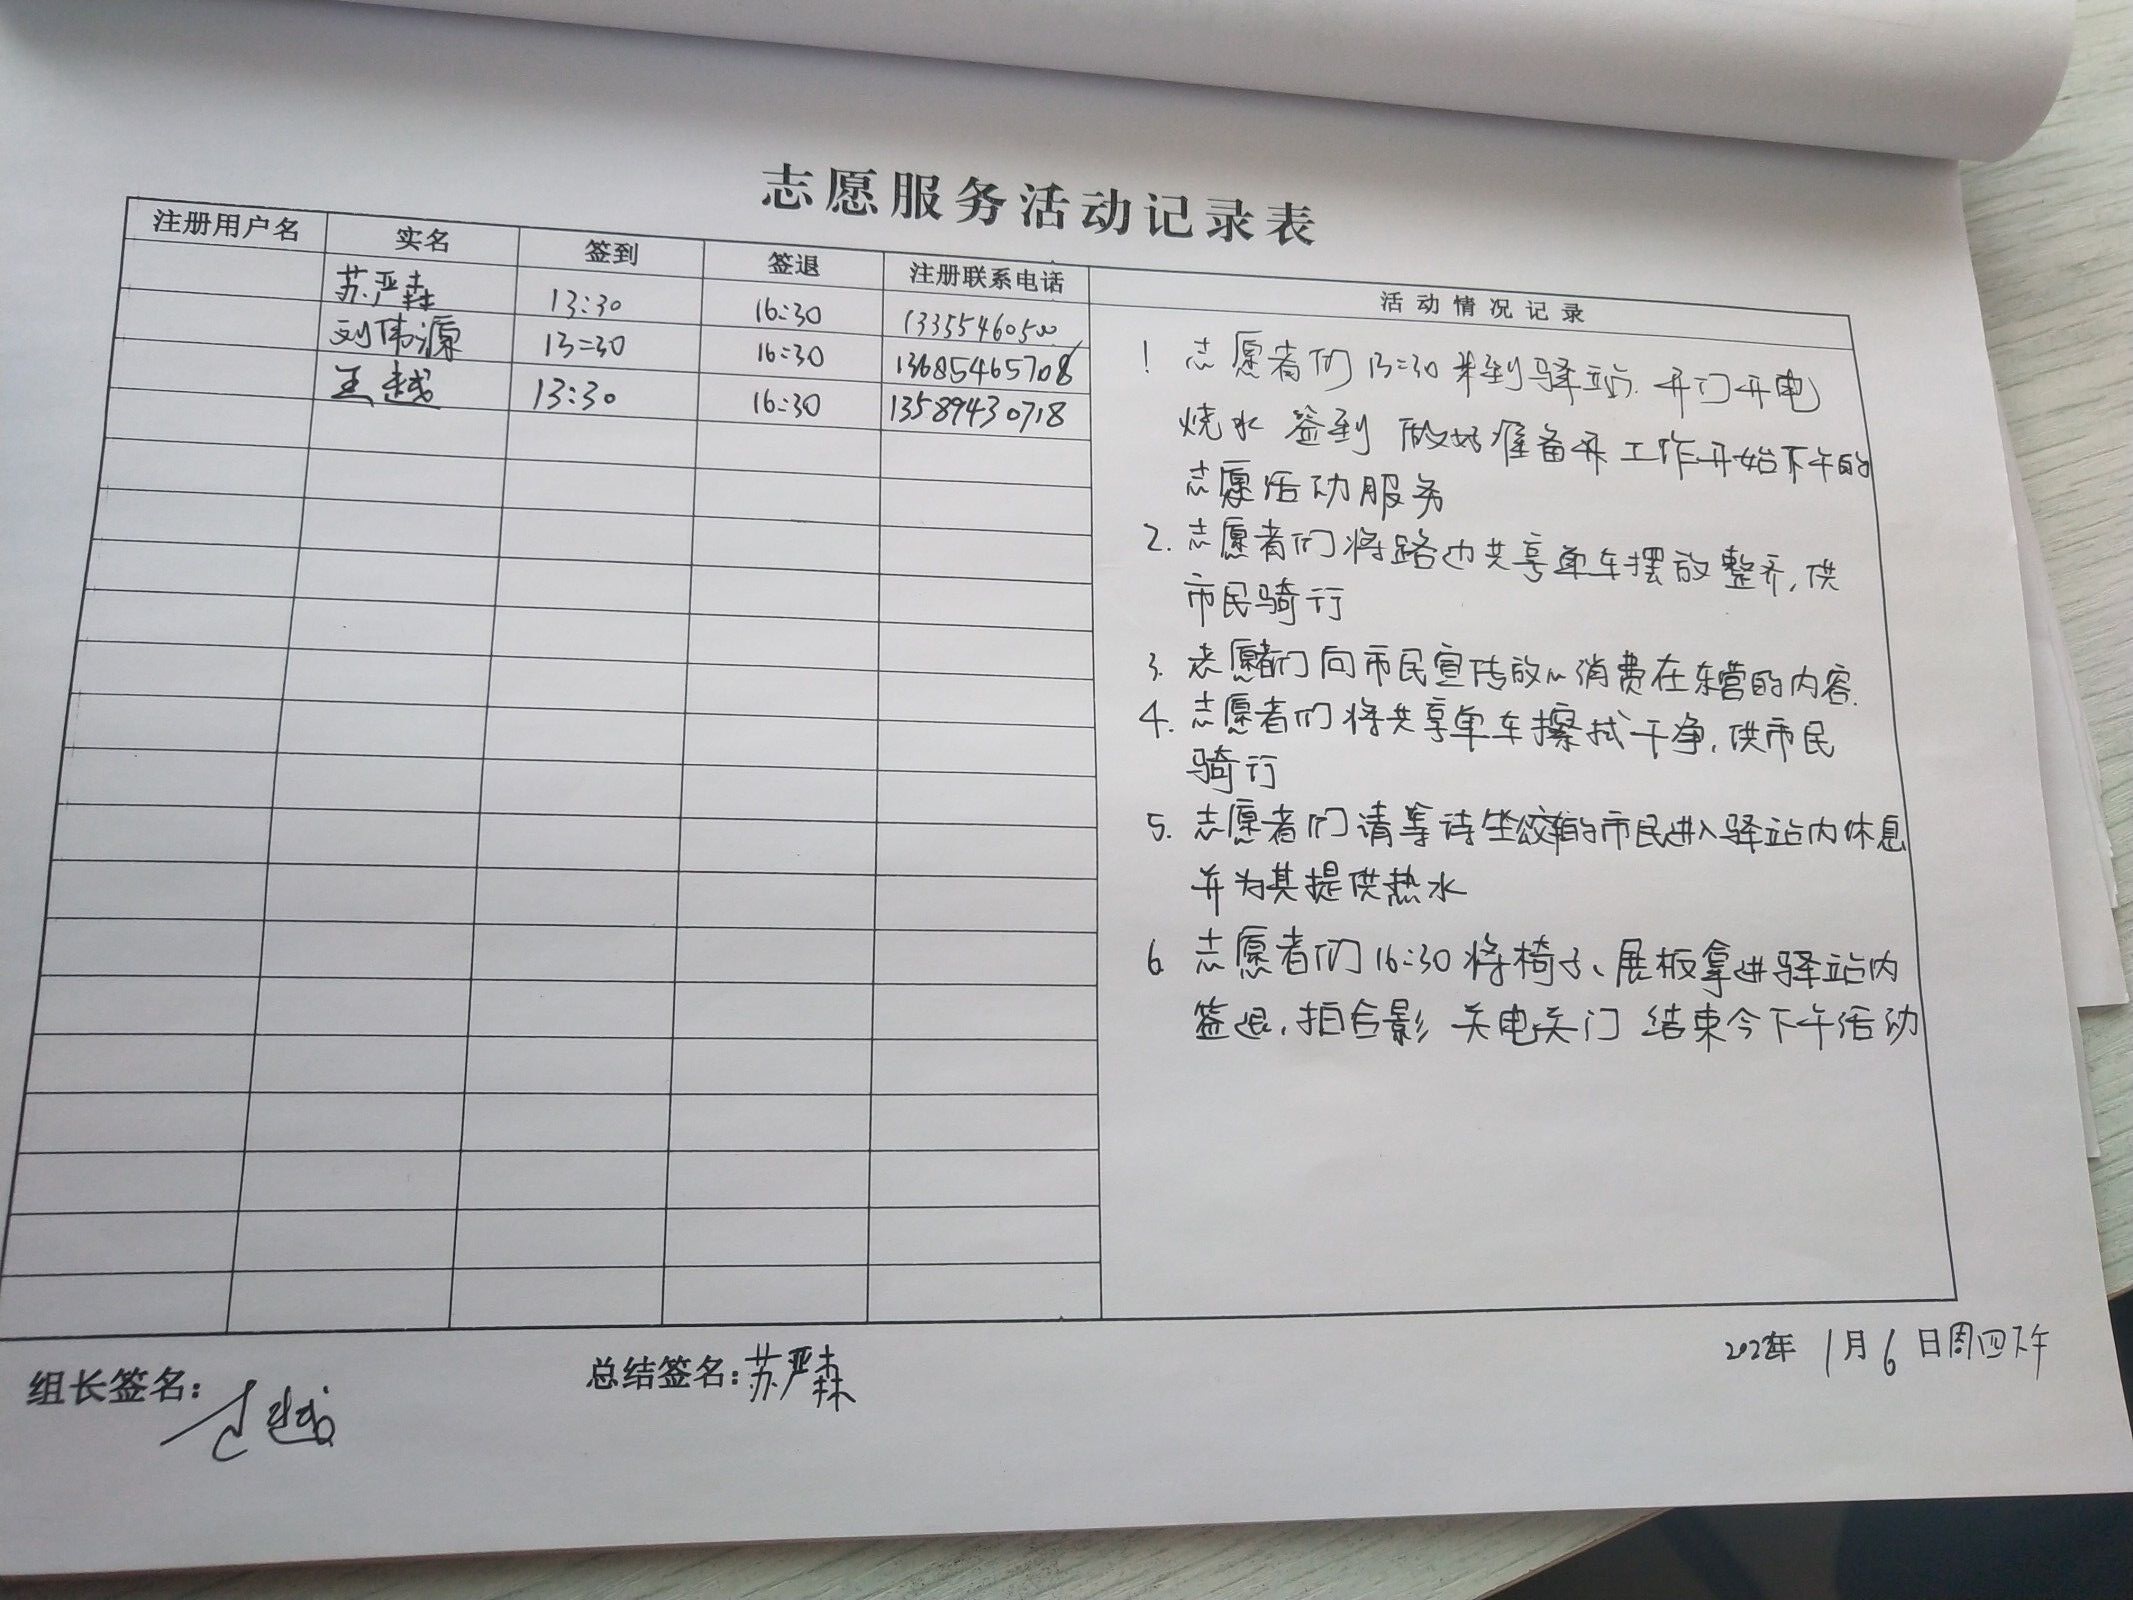 志愿服务活动记录表
注册用户名 实名 签到 签退 注册联系电话 活动情况记录
苏严森 13:30 16:30 13355460500
刘伟源 13:30 16:30 13685465708
王越 13:30 16:30 13589430718
1 志愿者们13:30来到驿站.开门开电
烧水 签到 做好准备 工作开始下午的
志愿活动服务
2.志愿者们将路边共享单车摆放整齐,供
市民骑行
3.志愿者们向市民宣传放心消费在东营的内容.
4.志愿者们将共享单车擦拭干净,供市民
骑行
5.志愿者们请等待坐的市民进入驿站内休息
并为其提供热水
6 志愿者们16:30将椅子、展板拿进驿站内
签退,拍合影 关电关门 结束今下午活动
组长签名: 王越 总结签名:苏严森 2022年1月6日周四下午